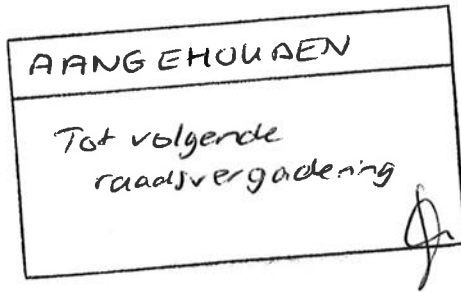 AANGEHOUDEN
Tot volgende
raadsvergadering